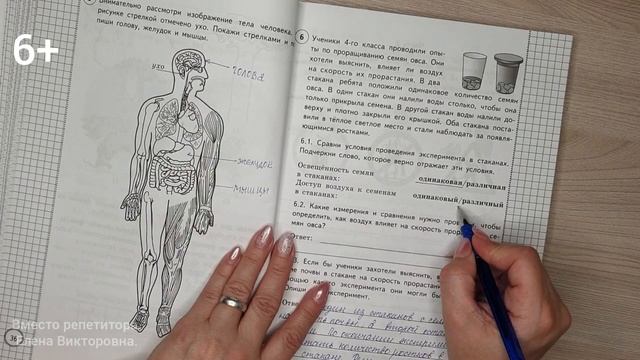 6+
Внимательно рассмотри изображение тела человека.
рисунке стрелкой отмечено ухо. Покажи стрелками и
пиши голову, желудок и мышцы.
ухо
голова
желудок
мышцы
6
Ученики 4-го класса проводили опы-
ты по проращиванию семян овса. Они
хотели выяснить, влияет ли воздух
на скорость их прорастания. В два
стакана ребята положили одинаковое количество семян
овса. В один стакан они налили воды столько, чтобы она
только прикрыла семена. В другой стакан воды налили до-
верху и плотно закрыли его крышкой. Оба стакана поста-
вили в тёплое светлое место и стали наблюдать за появля-
ющимися ростками.
6.1. Сравни условия проведения эксперимента в стаканах.
Подчеркни слово, которое верно отражает эти условия.
Освещённость семян
в стаканах: одинаковая/различная
Доступ воздуха к семенам
в стаканах: одинаковый/различный
6.2. Какие измерения и сравнения нужно чтобы
определить, как воздух влияет на скорость се-
мян овса?
Ответ:
3. Если бы ученики захотели выяснить,
почвы на скорость
какого эксперимента они могли бы
Опиши эксперимент.
один из стаканов с
почвы, а второй
По окончании
количество ростков в
36
Вместо репетитора.
Елена Викторовна.